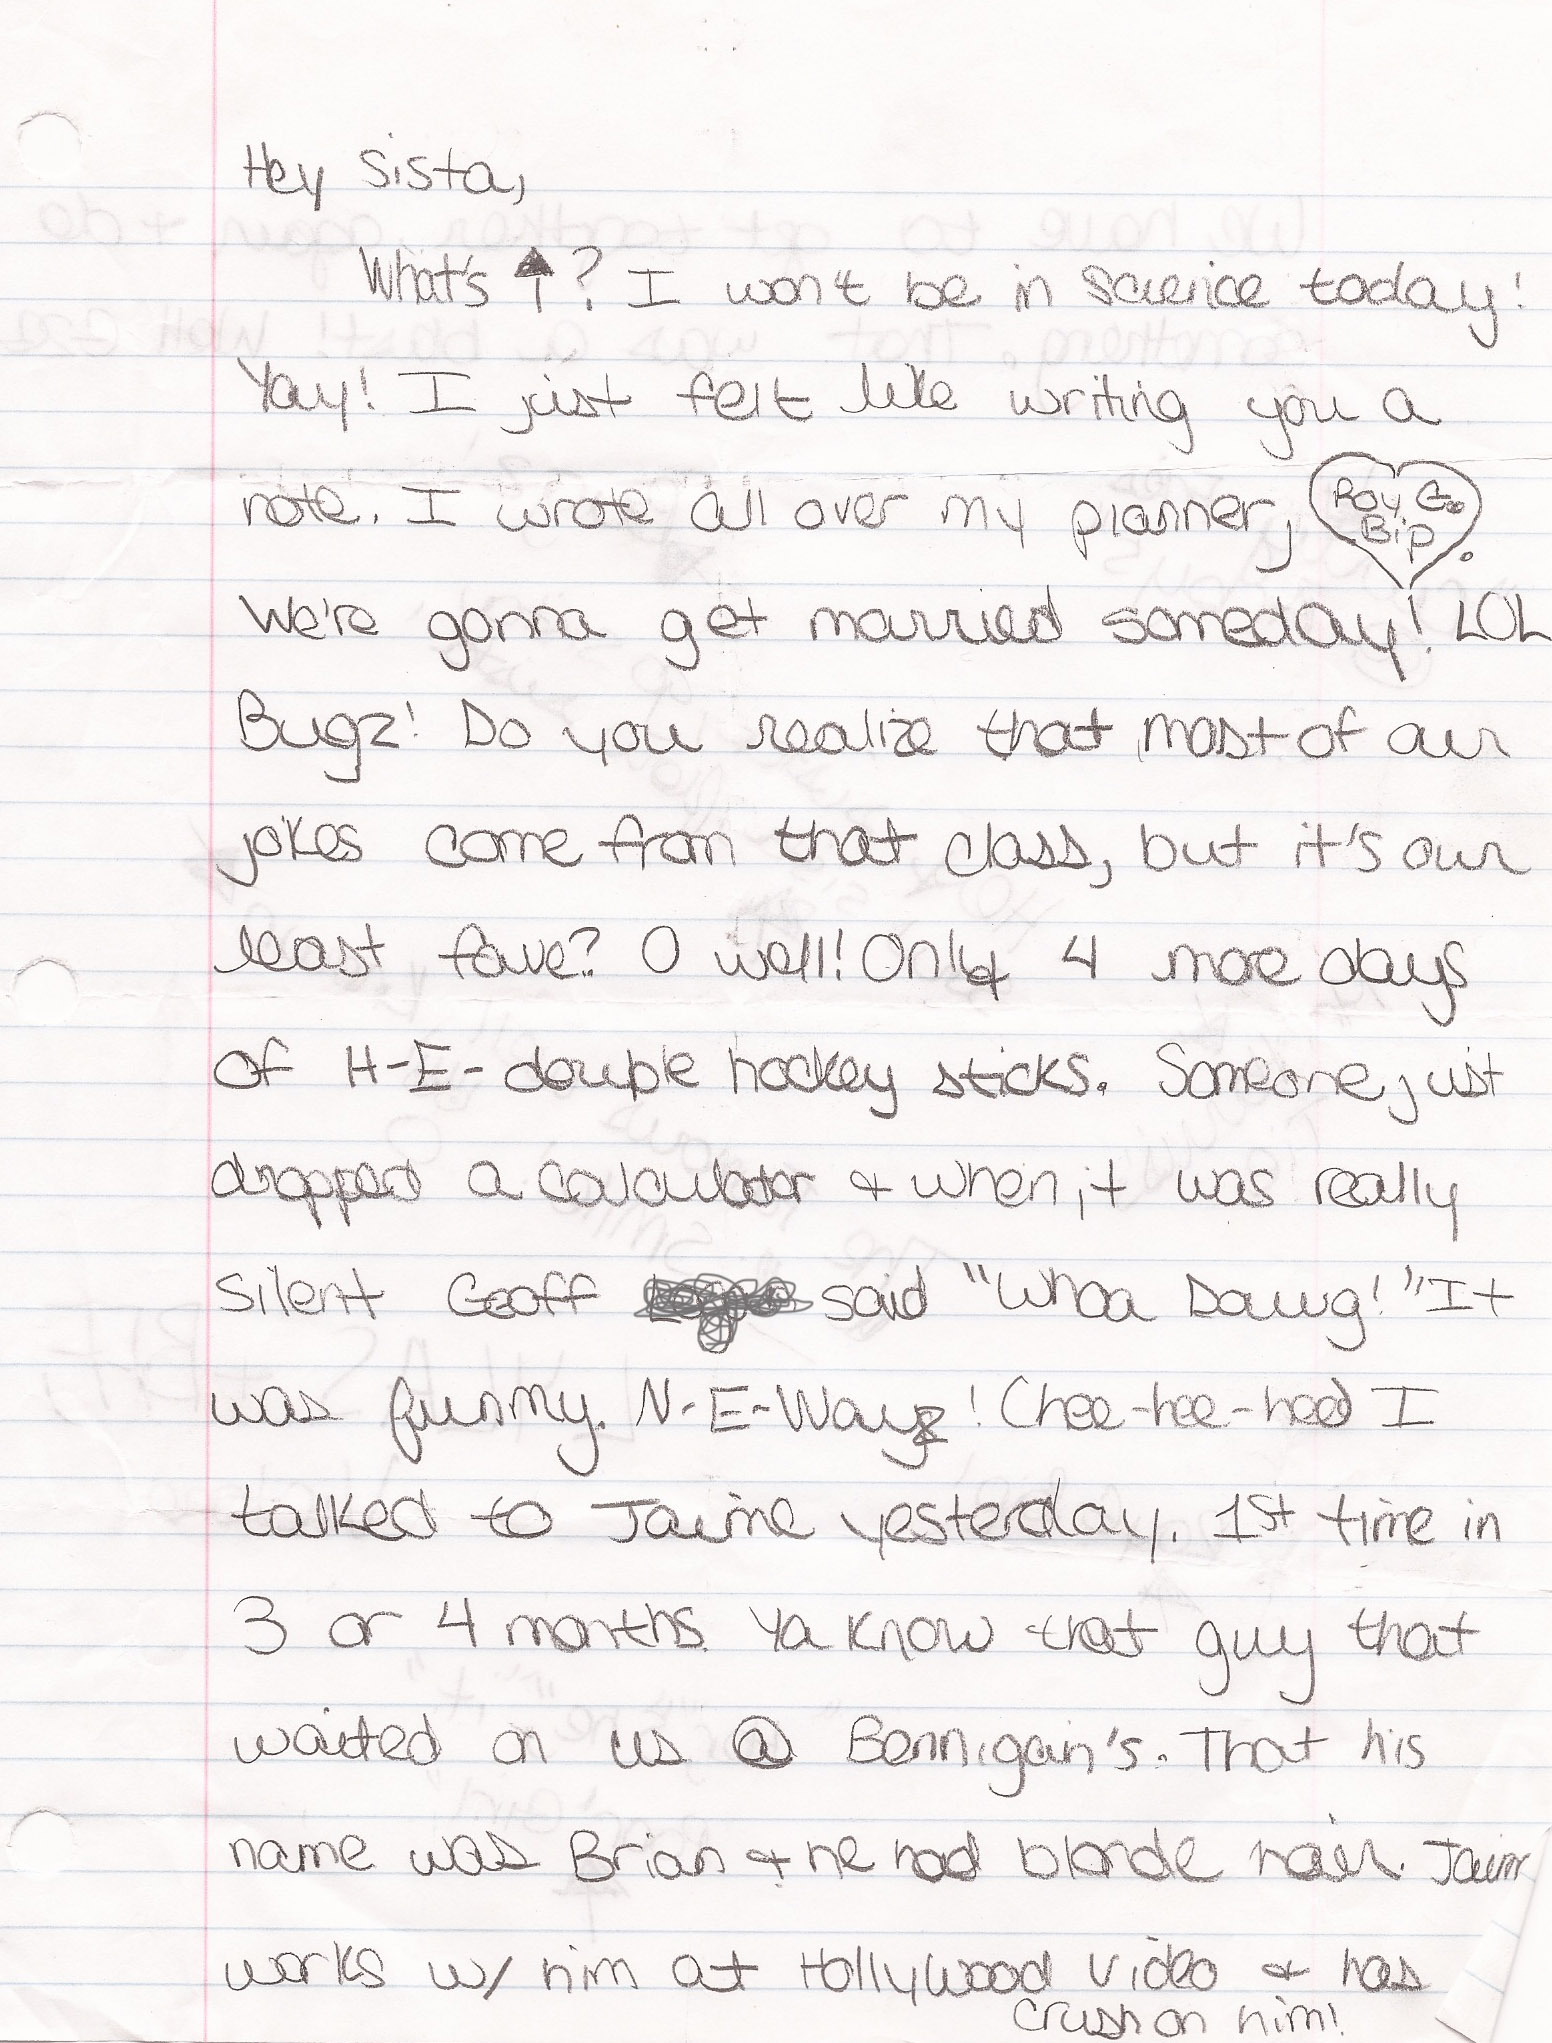 Hey Sista,
What's ↑? I won't be in science today!
Yay! I just felt like writing you a
note. I wrote all over my planner, Roy G. Bip.
We're gonna get married someday! LOL
Bugz! Do you realize that most of our
jokes come from that class, but it's our
least fave? O well! Only 4 more days
of H-E-double hockey sticks. Someone just
dropped a calculator + when it was really
silent Geoff said "Whoa Dawg!" It
was funny. N-E-Wayz! Chee-hee-hee! I
talked to Jaime yesterday. 1st time in
3 or 4 months. Ya know that guy that
waited on us @ Bennigan's. That his
name was Brian + he had blonde hair. Jaim
works w/ him at Hollywood Video + has
crush on him!